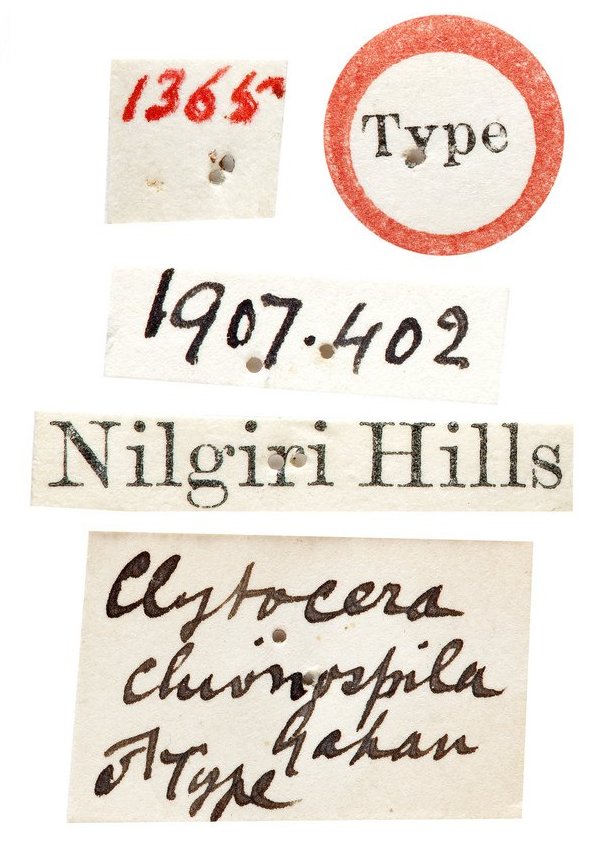 1365
Type
1907.402
Nilgiri Hills
Clytocera
chionospila
Gahan
Type